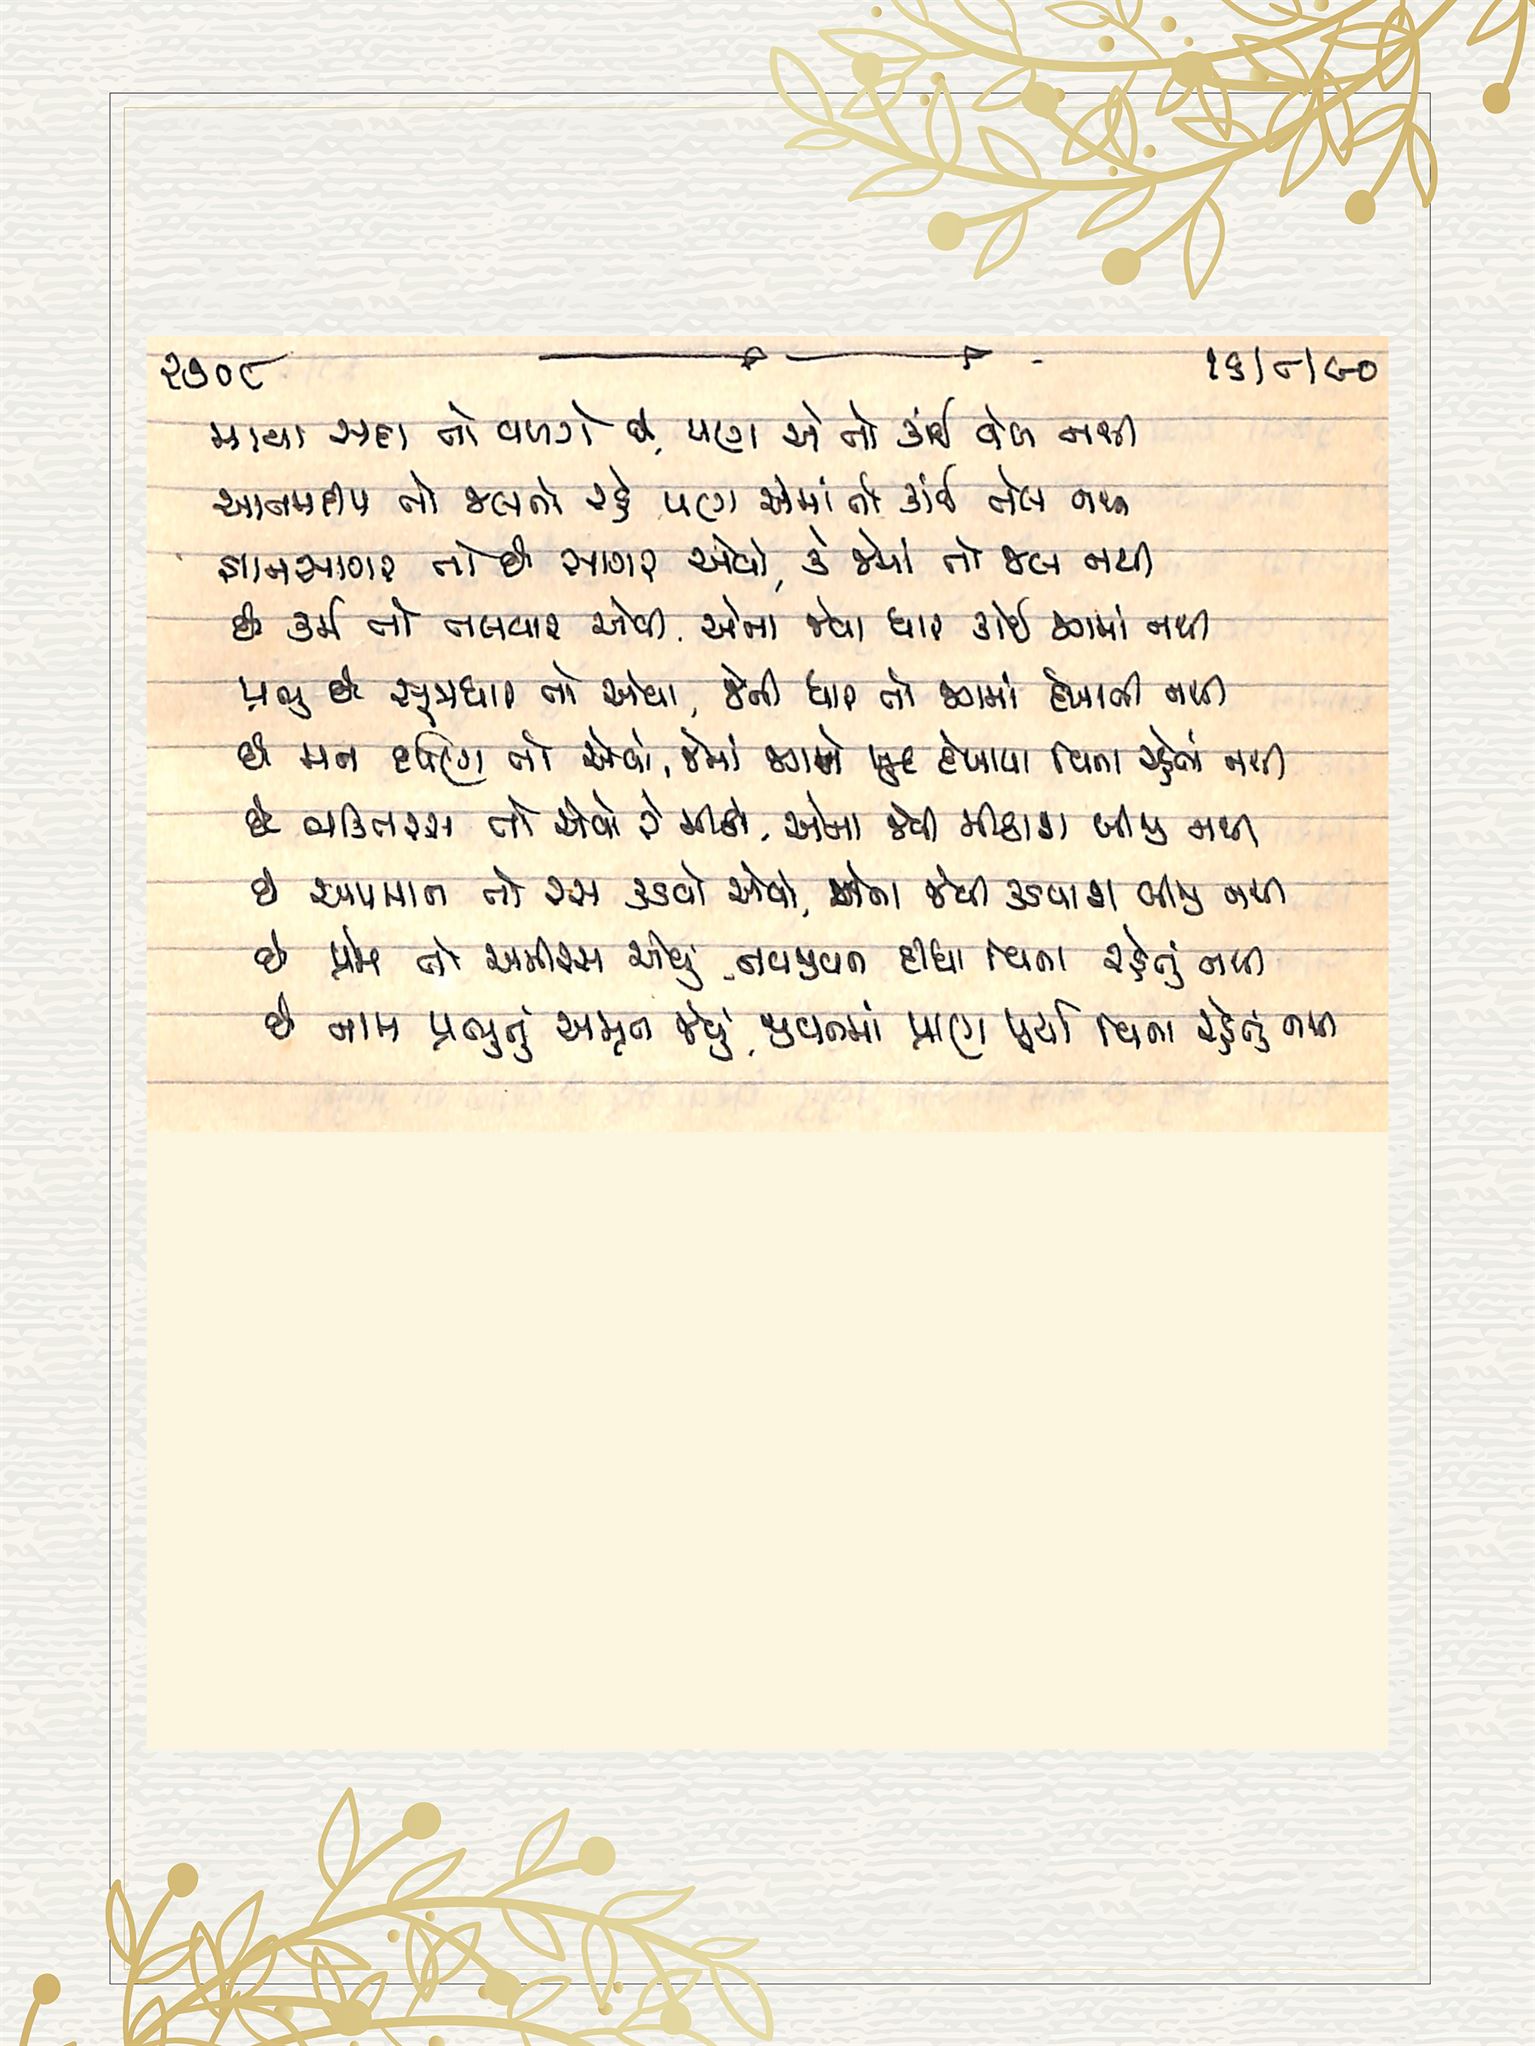 ૨૭૦૮ ૧૬/૮/૯૦
માયા સદા તો વળગે છે, પણ એ તો કાંઈ વેલ નથી
આતમદીપ તો જલતો રહે પણ એમાં તો કાંઈ તેલ નથી
જ્ઞાનસાગર તો છે સાગર એવો, કે જેમાં તો જલ નથી
છે કર્મ તો તલવાર એવી. એના જેવી ધાર કોઈ જગમાં નથી
પ્રભુ છે સૂત્રધાર તો એવા, જેની ધાર તો જગમાં દેખાતી નથી
છે મન દર્પણ તો એવો, જેમાં જગને ખુદ દેખાયા વિના રહેતાં નથી
છે ભક્તિરસ તો એવો રે મીઠો, એના જેવી મીઠાશ બીજી નથી
છે અપમાન તો રસ કડવો એવો, એના જેવી કડવાશ બીજી નથી
છે પ્રેમ તો અમીરસ એવું નવજીવન દીધા વિના રહેતું નથી
છે નામ પ્રભુનું અમૃત જેવું, જીવનમાં પ્રાણ પૂર્યા વિના રહેતું નથી